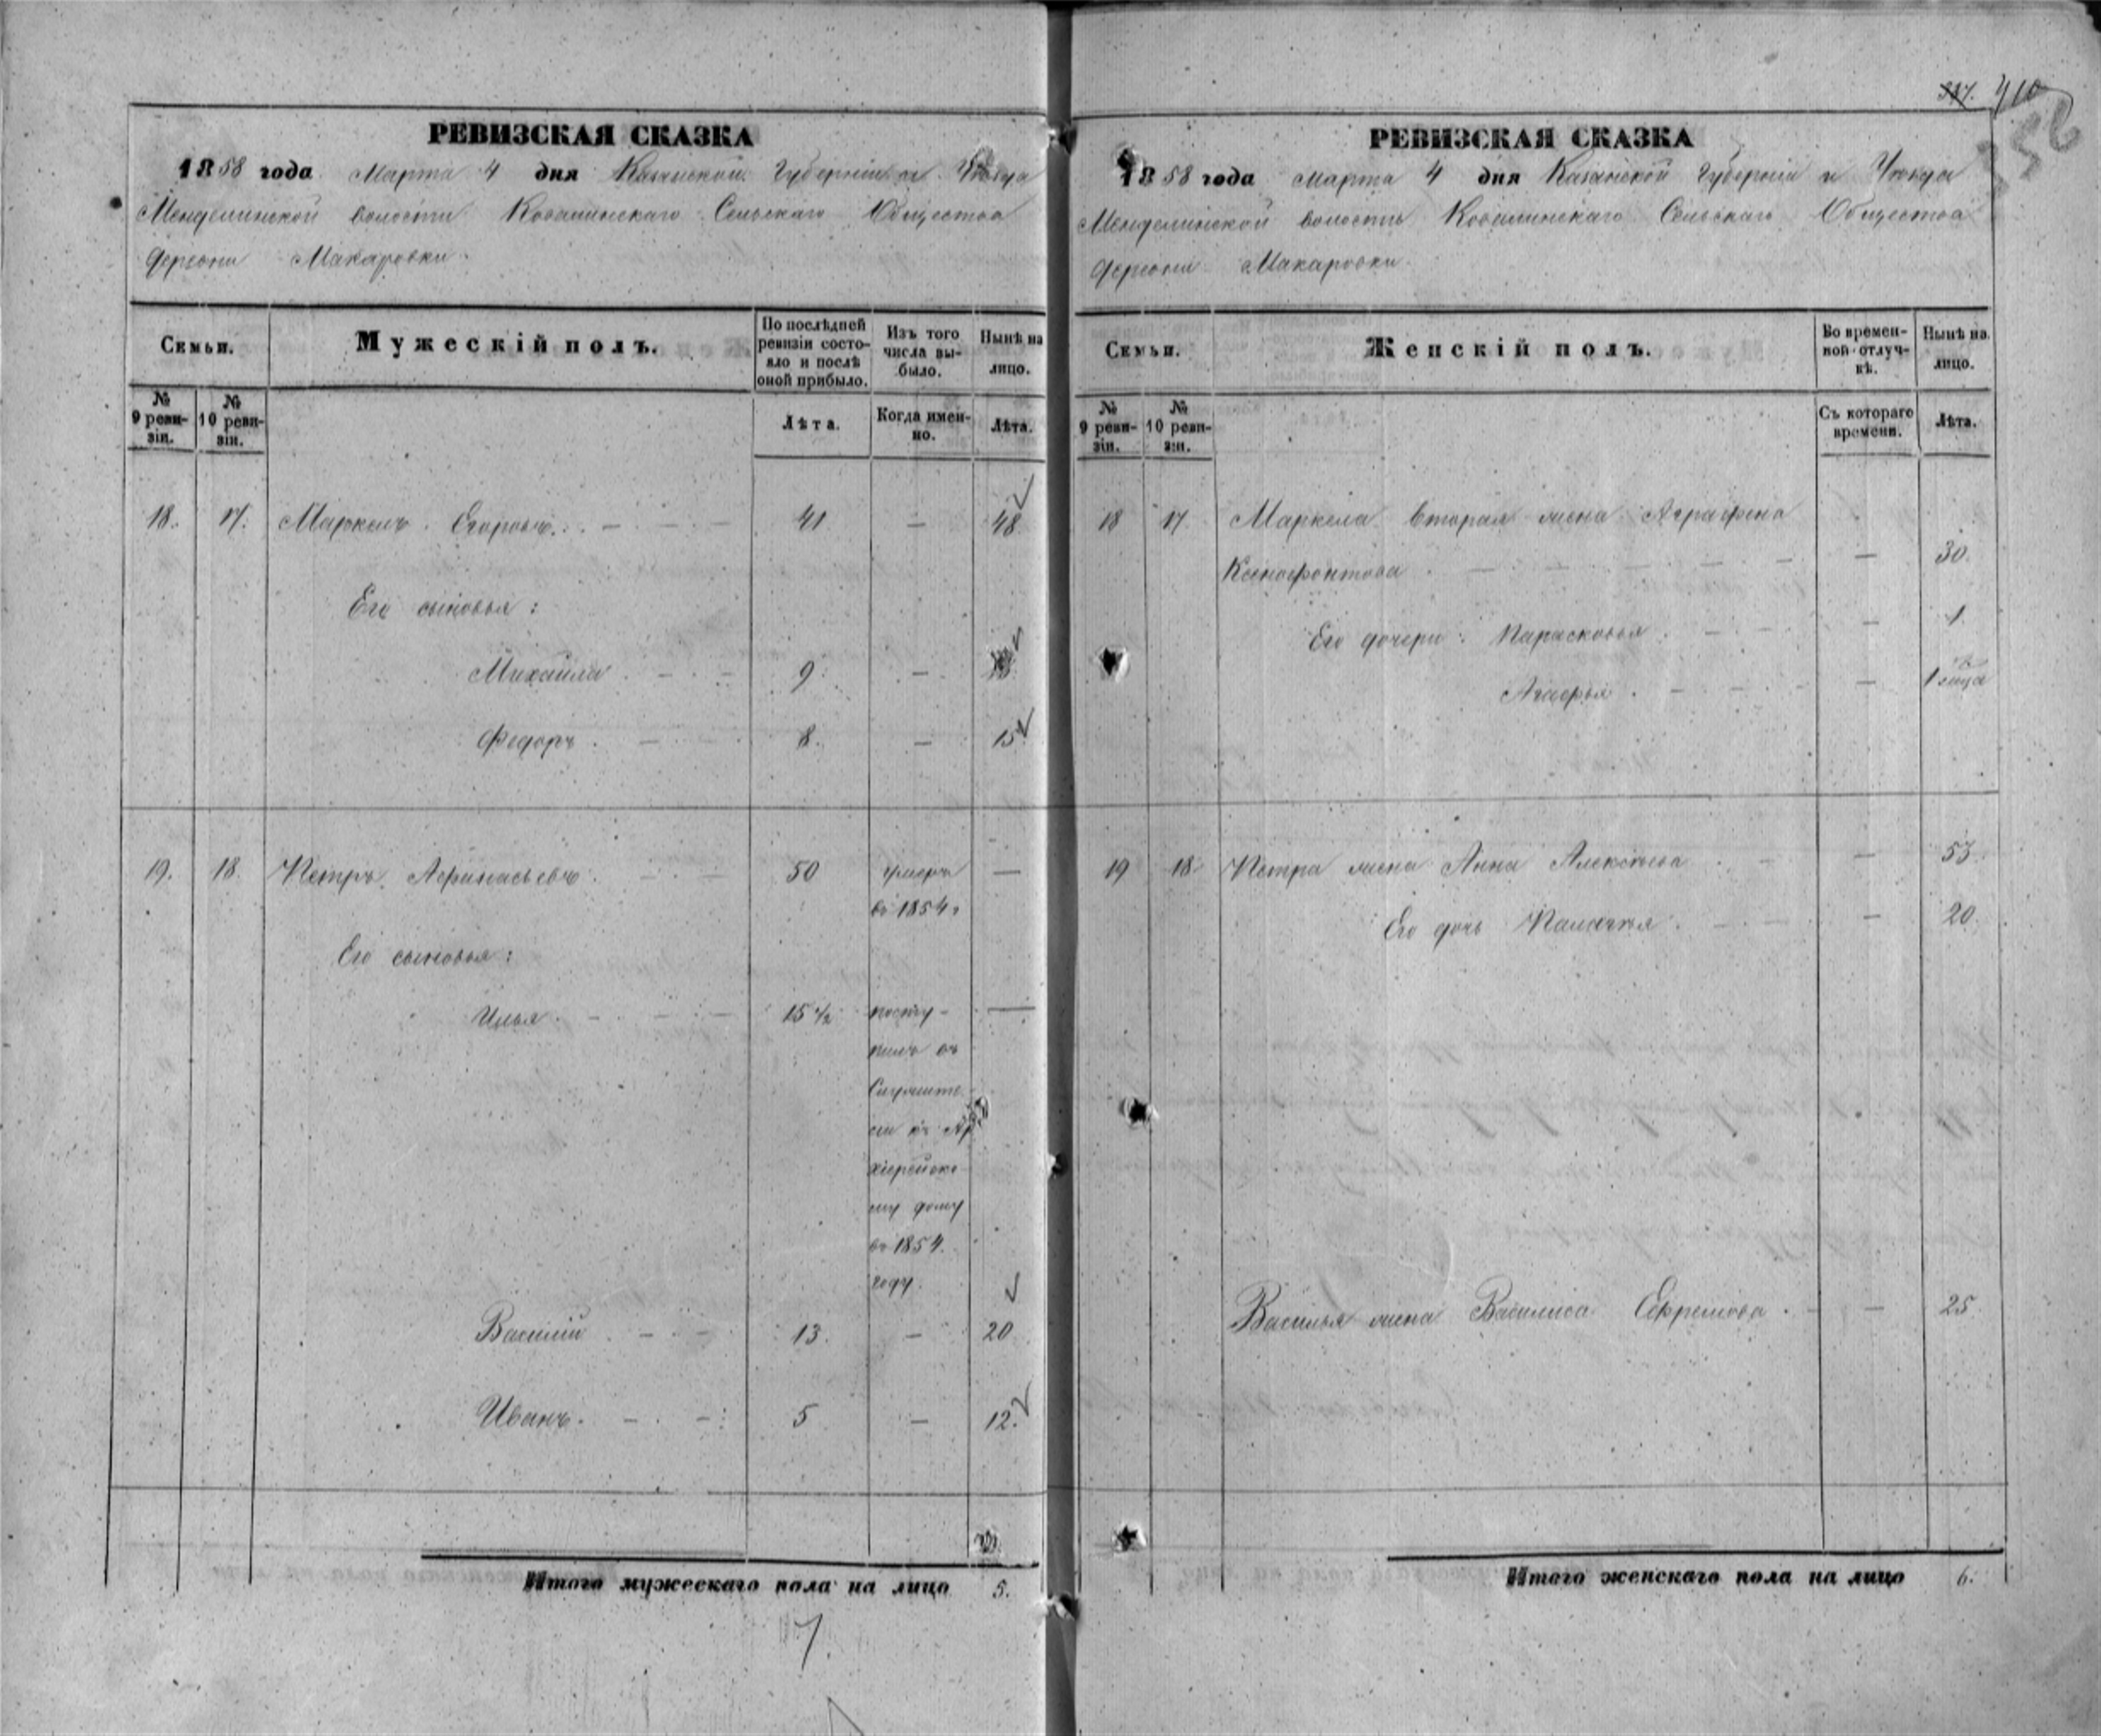 РЕВИЗСКАЯ СКАЗКА
1858 года Марта 4 дня Казанской Губерніи и Уѣзда
Менделинской волости Ковалинскаго Сельскаго Общества
деревни Макаровки.
Семьи.
Мужескій полъ.
По послѣдней ревизіи состояло и послѣ оной прибыло.
Изъ того числа выбыло.
Нынѣ на лицо.
№ 9 ревизіи.
№ 10 ревизіи.
Лѣта.
Когда именно.
Лѣта.
18. 17. Маркелъ Егоровъ. 41 — 48
Его сыновья:
Михайла 9 —
Федоръ 8. — 15
19. 18. Петръ Афанасьевъ 50 умеръ —
въ 1854
Его сыновья:
Илья 15 1/2 посту-
пилъ въ
Служите-
ли къ Ар
хіерейско
му дому
въ 1854
году.
Василій 13. — 20
Иванъ. 5 — 12.
Итого мужескаго пола на лицо 5.
7.
337. 410
РЕВИЗСКАЯ СКАЗКА
1858 года Марта 4 дня Казанской Губерніи и Уѣзда
Менделинской волости Ковалинскаго Сельскаго Общества
деревни Макаровки.
Семьи.
Женскій полъ.
Во временной отлучкѣ.
Нынѣ на лицо.
№ 9 ревизіи.
№ 10 ревизіи.
Съ котораго времени.
Лѣта.
18 17. Маркела вторая жена Аграфена
Ксенофонтова — 30.
Его дочери: Парасковья — 1
Агафья — 1
19 18 Петра жена Анна Алексѣева — 53.
Его дочь Палагѣя — 20.
Василья жена Василиса Ефремова — 25.
Итого женскаго пола на лицо 6.